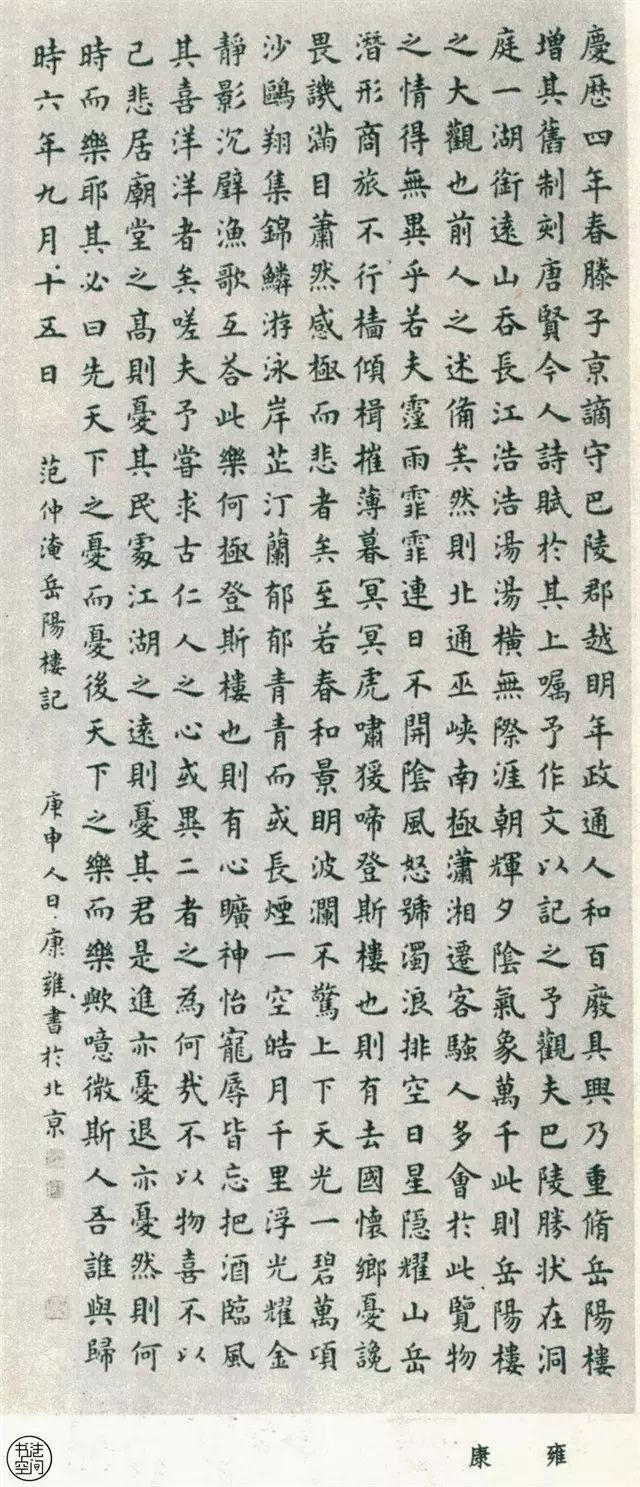 慶歷四年春滕子京謫守巴陵郡越明年政通人和百廢具興乃重脩岳陽樓
增其舊制刻唐賢今人詩賦於其上囑予作文以記之予觀夫巴陵勝狀在洞
庭一湖銜遠山吞長江浩浩湯湯橫無際涯朝輝夕陰氣象萬千此則岳陽樓
之大觀也前人之述備矣然則北通巫峽南極瀟湘遷客騷人多會於此覽物
之情得無異乎若夫霪雨霏霏連日不開陰風怒號濁浪排空日星隱耀山岳
潛形商旅不行檣傾楫摧薄暮冥冥虎嘯猨啼登斯樓也則有去國懷鄉憂讒
畏譏滿目蕭然感極而悲者矣至若春和景明波瀾不驚上下天光一碧萬頃
沙鷗翔集錦鱗游泳岸芷汀蘭郁郁青青而或長煙一空皓月千里浮光耀金
靜影沉璧漁歌互答此樂何極登斯樓也則有心曠神怡寵辱皆忘把酒臨風
其喜洋洋者矣嗟夫予嘗求古仁人之心或異二者之為何哉不以物喜不以
己悲居廟堂之高則憂其民處江湖之遠則憂其君是進亦憂退亦憂然則何
時而樂耶其必曰先天下之憂而憂後天下之樂而樂歟噫微斯人吾誰與歸
時六年九月十五日 范仲淹岳陽樓記 庚申人日康雍書於北京
康 雍
书法空间